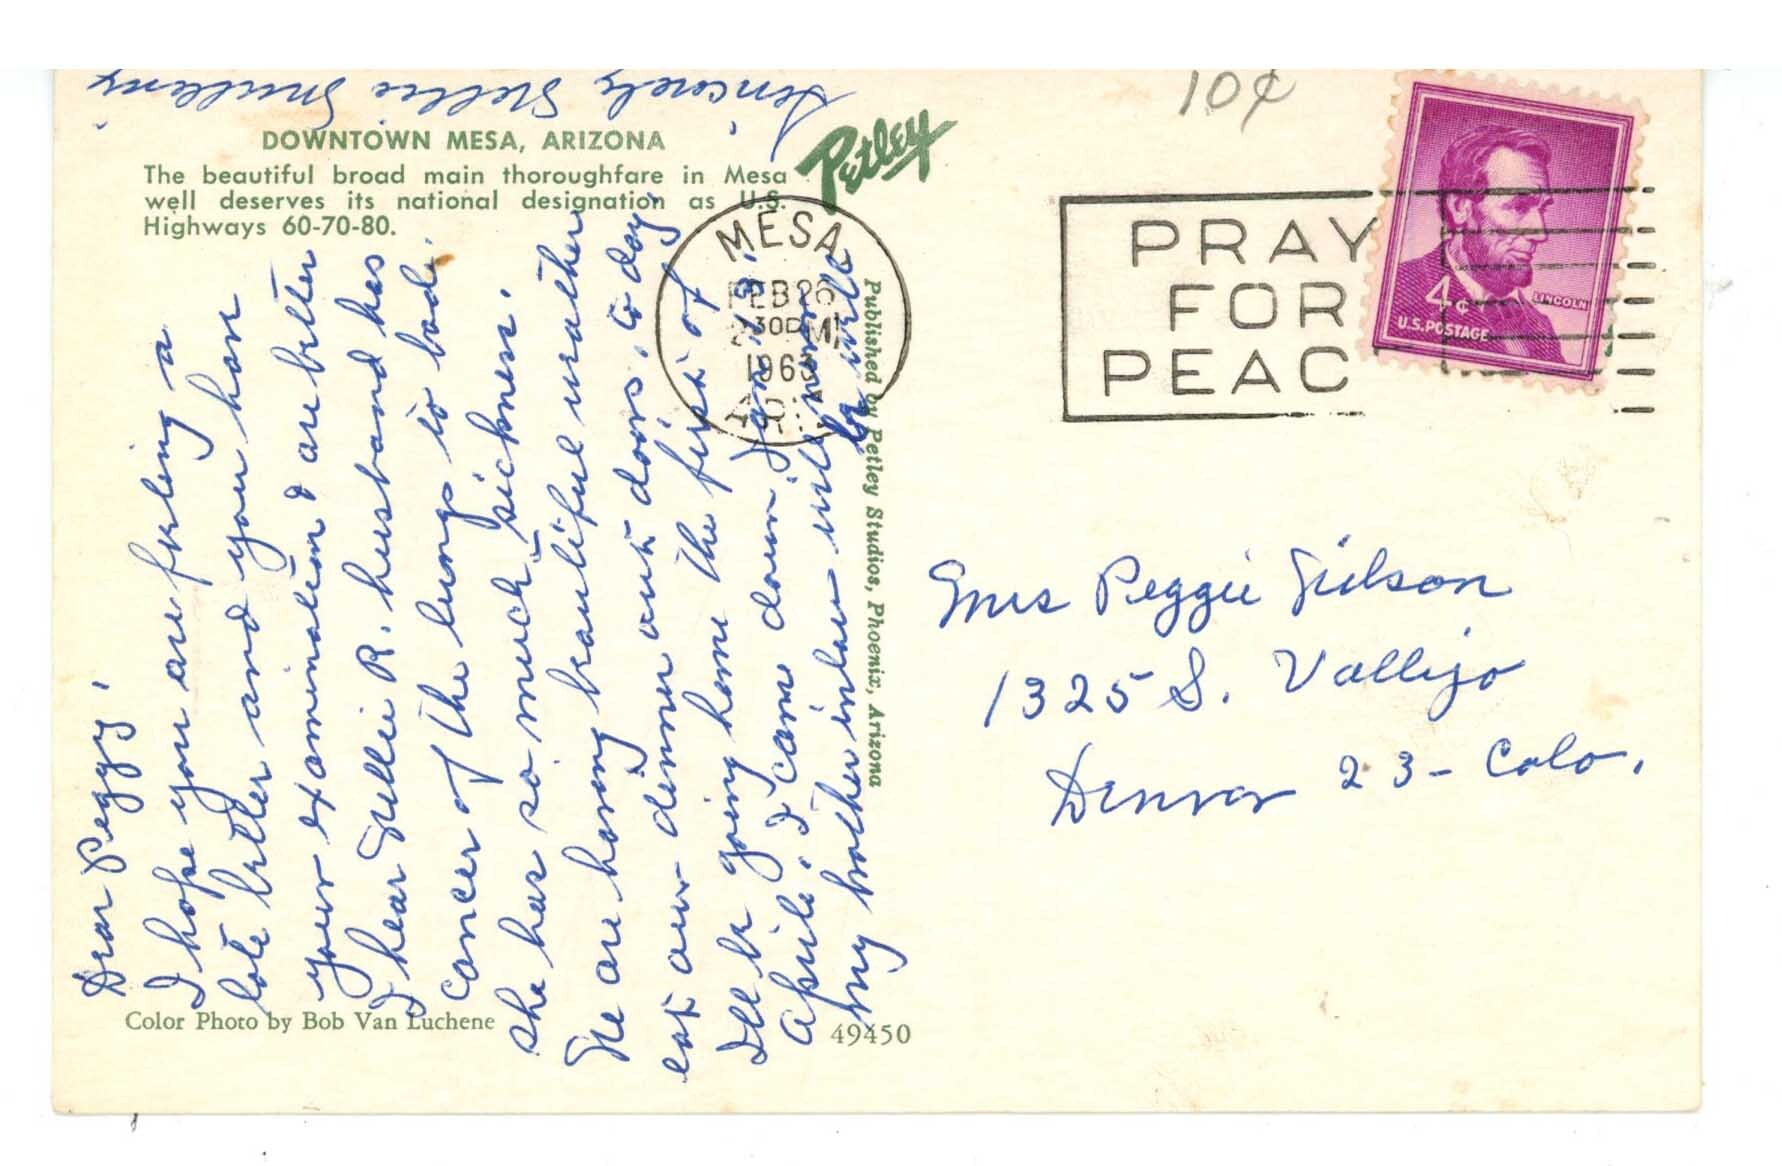 10¢
DOWNTOWN MESA, ARIZONA
The beautiful broad main thoroughfare in Mesa
well deserves its national designation as U.S.
Highways 60-70-80.
Petley
MESA
FEB 26
2 30 PM
1963
ARIZ
PRAY
FOR
PEAC
4¢
LINCOLN
U.S. POSTAGE
Dear Peggy,
I hope you are feeling a
lote better and you have
your examination & are better
I hear Nellie R. husband has
cancer of the lungs to bad.
She has so much sickness.
We are having beautiful weather
eat our dinner out doors, to day.
Ill be going home the first of
April. I came down Jan 3,
my brother inlaw will come
Sincerely Nellie
Published by Petley Studios, Phoenix, Arizona
Color Photo by Bob Van Luchene
49450
Mrs Peggie Gilson
1325 S. Vallejo
Denver 23- Colo.